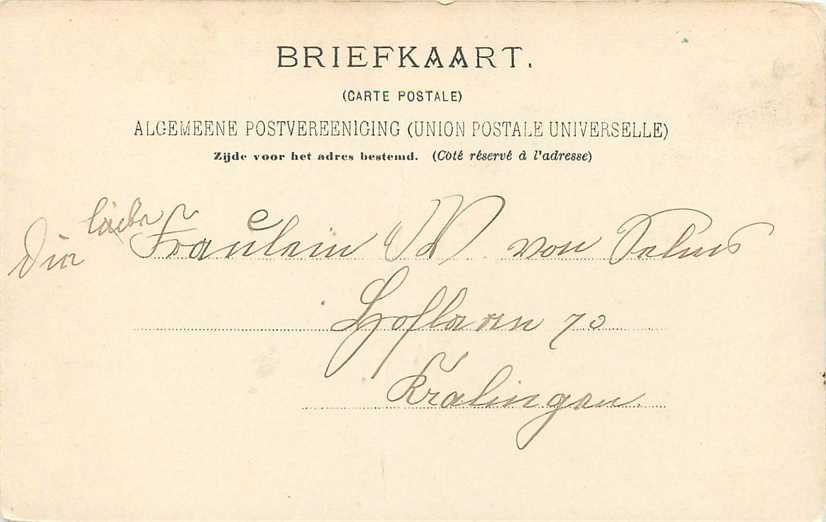 BRIEFKAART.
(CARTE POSTALE)
ALGEMEENE POSTVEREENIGING (UNION POSTALE UNIVERSELLE)
Zijde voor het adres bestemd. (Côté réservé à l'adresse)
liebe
Fräulein W. von
Hoflaan 70
Kralingen.